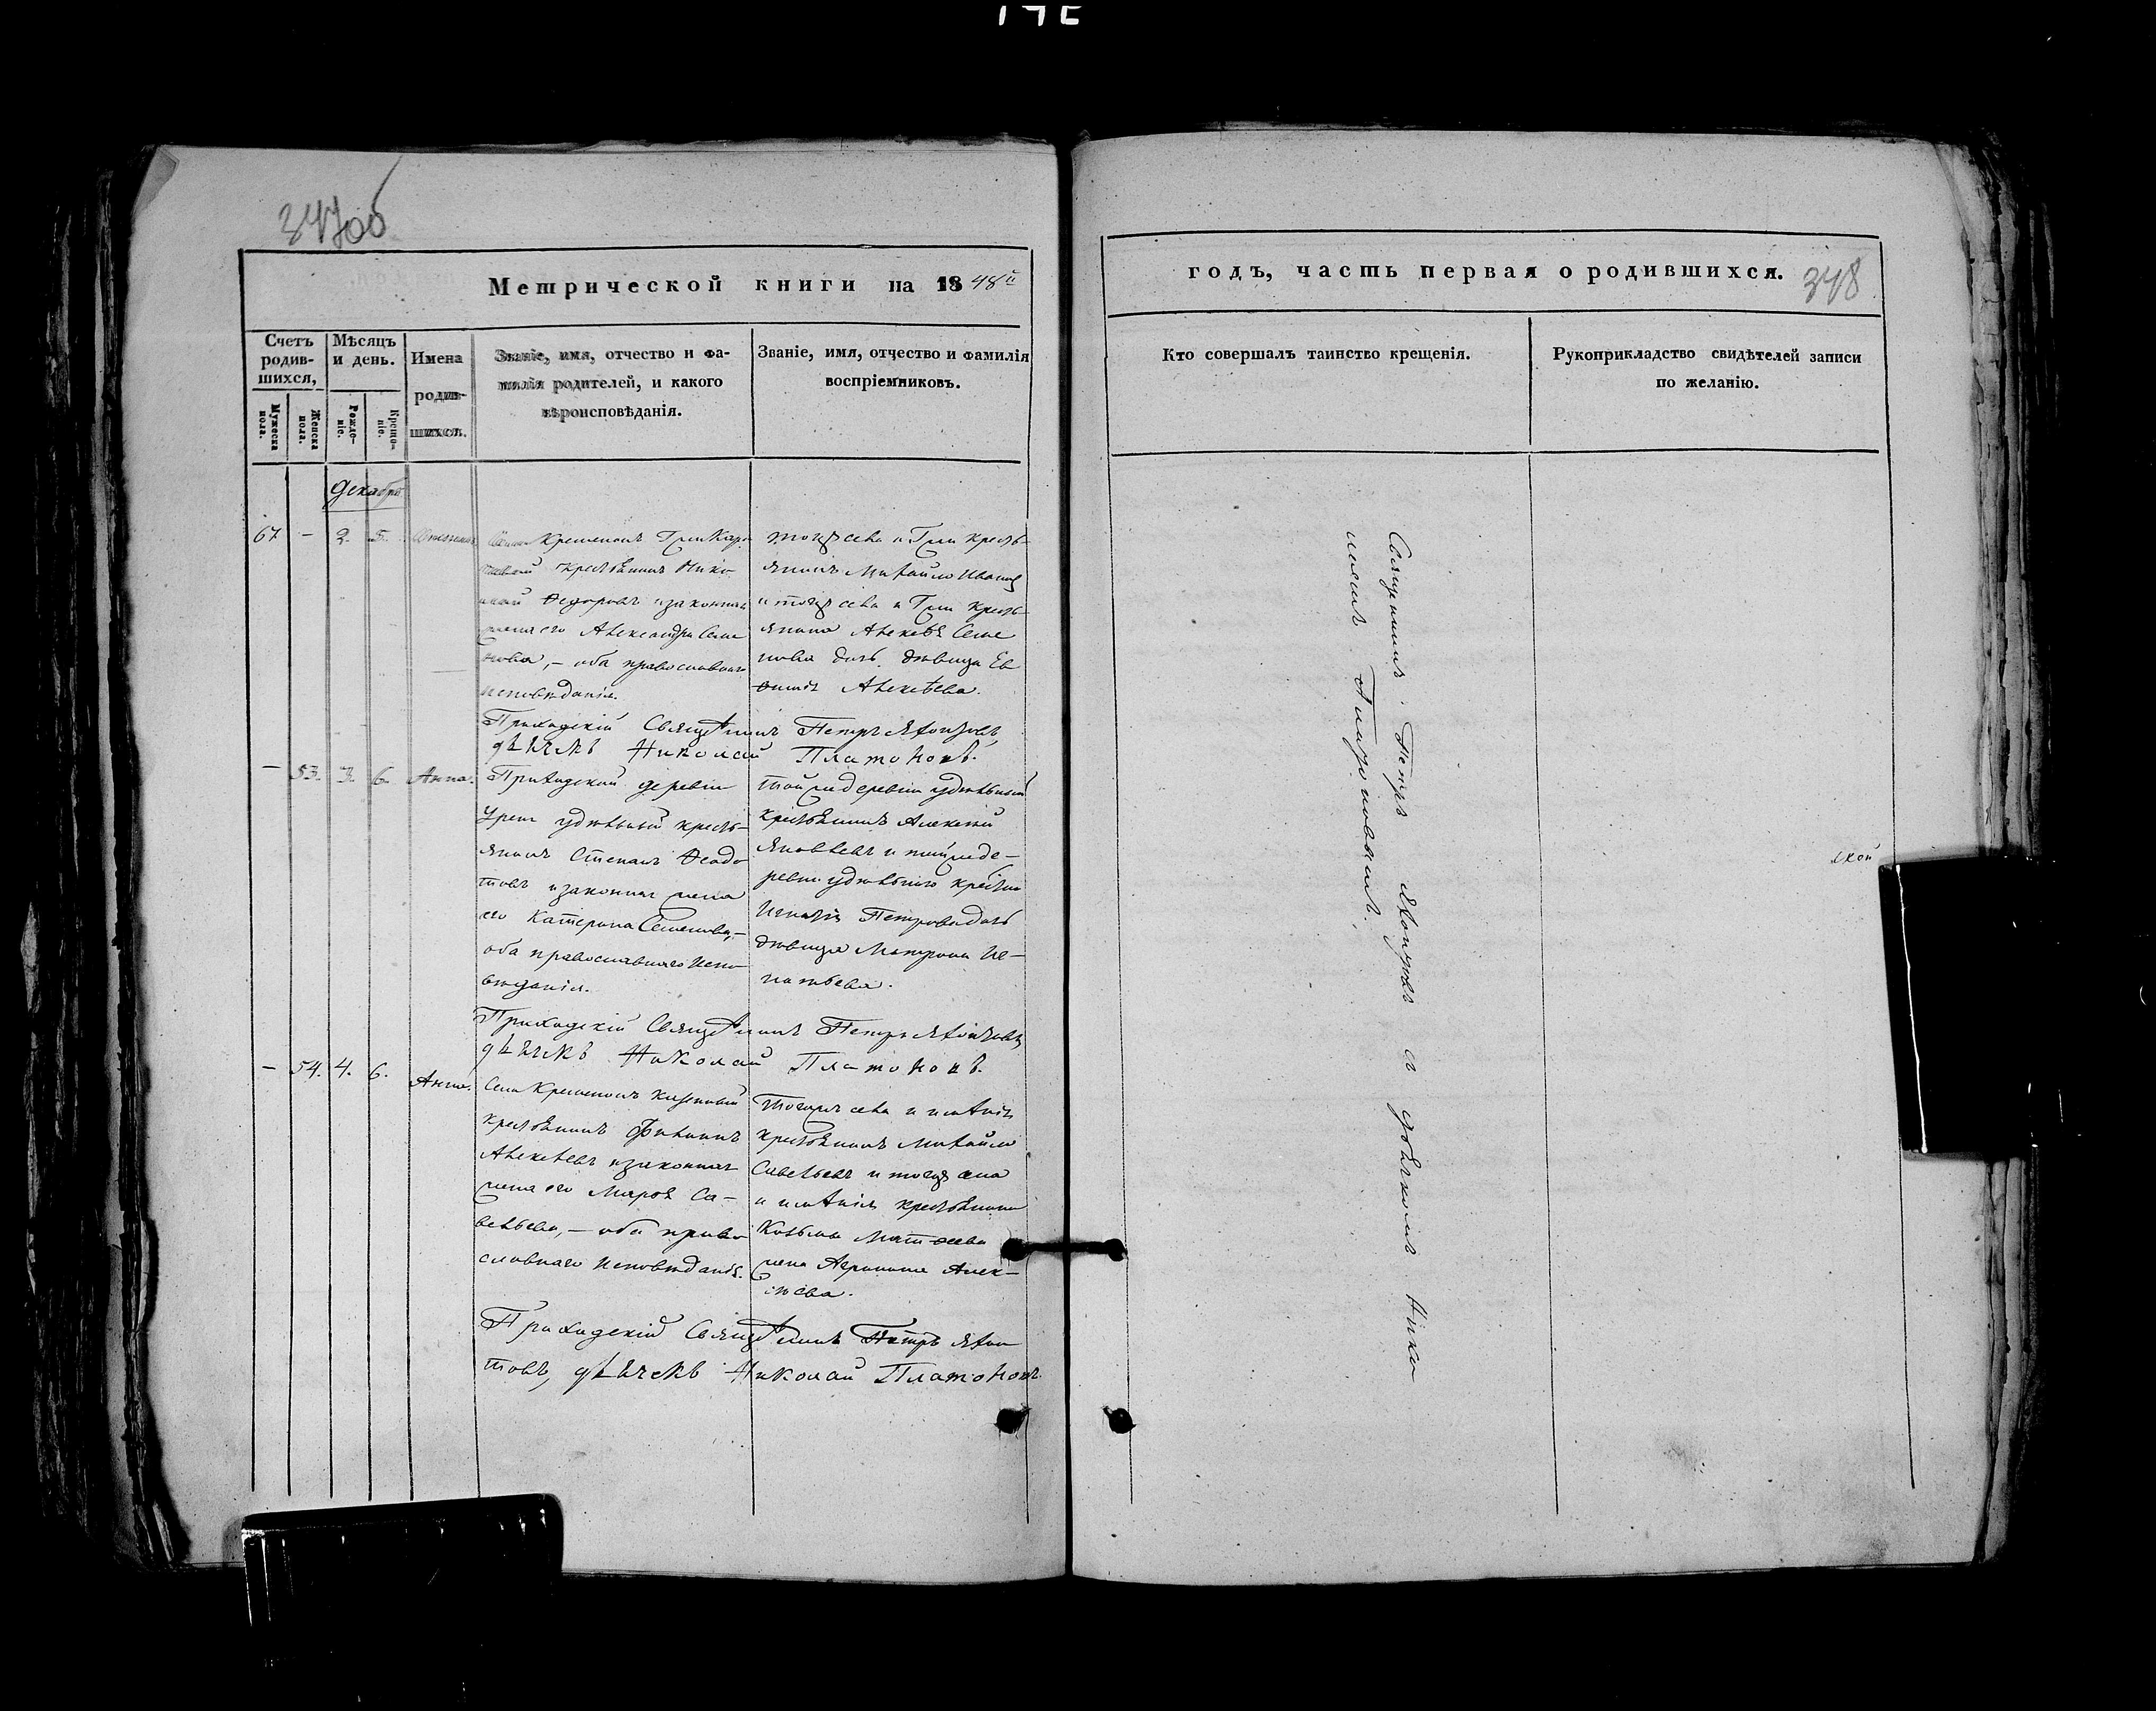 347об
Метрической книги на 1848й
Счетъ родившихся,
Мѣсяцъ и день.
Имена родившихся.
Званіе, имя, отчество и фамилія родителей, и какого вѣроисповѣданія.
Званіе, имя, отчество и фамилія воспріемниковъ.
Мужеска пола.
Женска пола.
Рожденіе.
Крещеніе.
Декабрь
67 - 2. 5.
крестьянинъ Нико
лай Ѳедоровъ и законная
жена его Александра Семе
нова, - оба православнаго
исповѣданія.
тогожъ села
янинъ Михайло Ивановъ
и тогожъ села
янина Алексѣя Семе
нова дочь девица Ев
ѳимія Алексѣева.
Приходскій Священникъ Петръ
дьячекъ Николай Платоновъ.
- 53. 3. 6. Анна.
Приходской деревни
удѣльный кресть-
янинъ Степанъ Ѳедо
товъ и законная жена
его Катерина Семенова,-
оба православнаго испо-
вѣданія.
той же деревни удѣльный
крестьянинъ Алексей
Яковлевъ и той же де-
ревни удѣльнаго
Игнатія Петрова дочь
девица Матрона Иг-
натьева.
Приходскій Священникъ Петръ
дьячекъ Николай Платоновъ.
- 54. 4. 6. Анна.
Села казенный
крестьянинъ Филиппъ
Алексеевъ и законная
жена его Марѳа Са-
вельева, - оба право
славнаго исповѣданія.
тогожъ села
крестьянинъ Михайло
Савельевъ и тогожъ села
крестьянина
Козьмы Матѳеева
жена Агрипина Алек-
сѣева.
Приходскій Священникъ Петръ
дьячекъ Николай Платоновъ.
годъ, часть первая о родившихся.
348
Кто совершалъ таинство крещенія.
Рукоприкладство свидѣтелей записи по желанію.
Священникъ Петръ съ дьячкомъ Нико
лаемъ Платоновымъ.